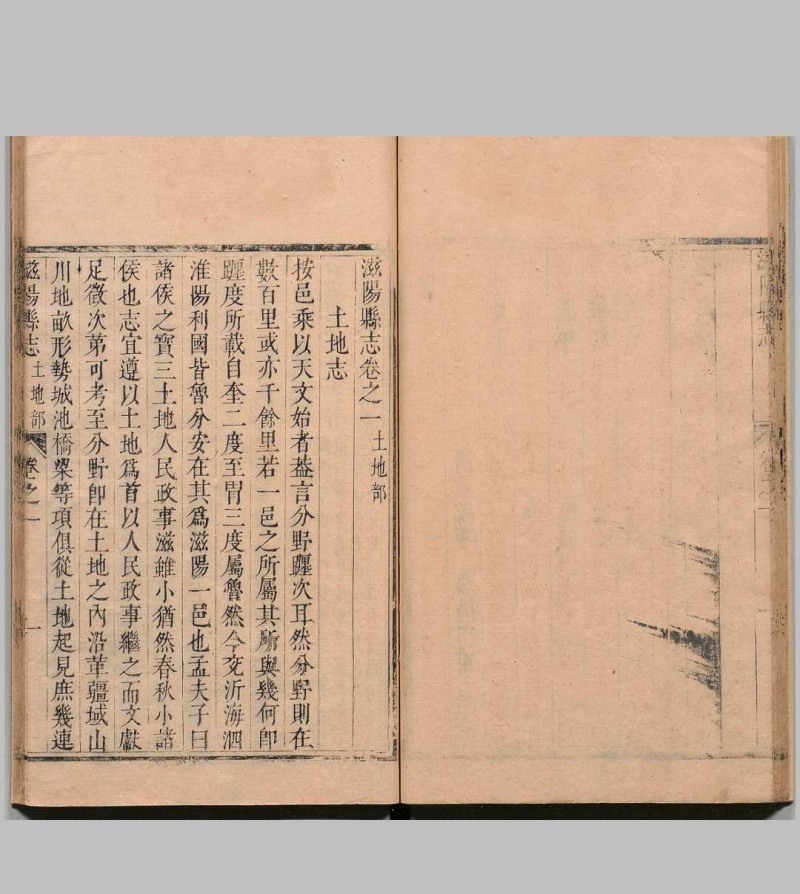 滋陽縣志卷之一 土地部
土地志
按邑乘以天文始者蓋言分野躔次耳然分野則在
數百里或亦千餘里若一邑之所屬其所與幾何即
躔度所載自奎二度至胃三度屬魯然今兗沂海泗
淮陽利國皆魯分安在其爲滋陽一邑也孟夫子曰
諸侯之寶三土地人民政事滋雖小猶然春秋小諸
侯也志宜遵以土地爲首以人民政事繼之而文獻
足徵次第可考至分野即在土地之內沿革疆域山
川地畝形勢城池橋梁等項俱從土地起見庶幾連
滋陽縣志 土地部 卷之一 一